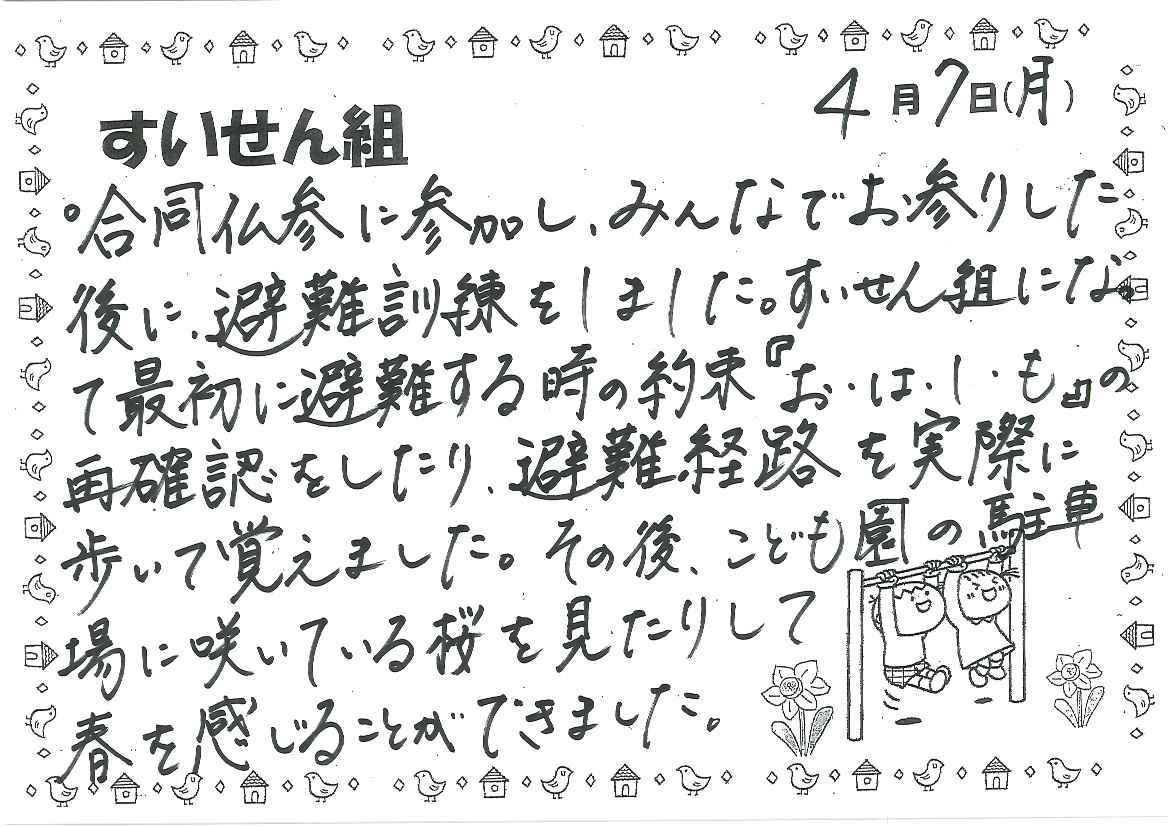 4月7日(月)
すいせん組
。合同仏参に参加し、みんなでお参りした
後に、避難訓練をしました。すいせん組になっ
て最初に避難する時の約束『お・は・し・も』の
再確認をしたり、避難経路を実際に
歩いて覚えました。その後、こども園の駐車
場に咲いている桜を見たりして
春を感じることができました。